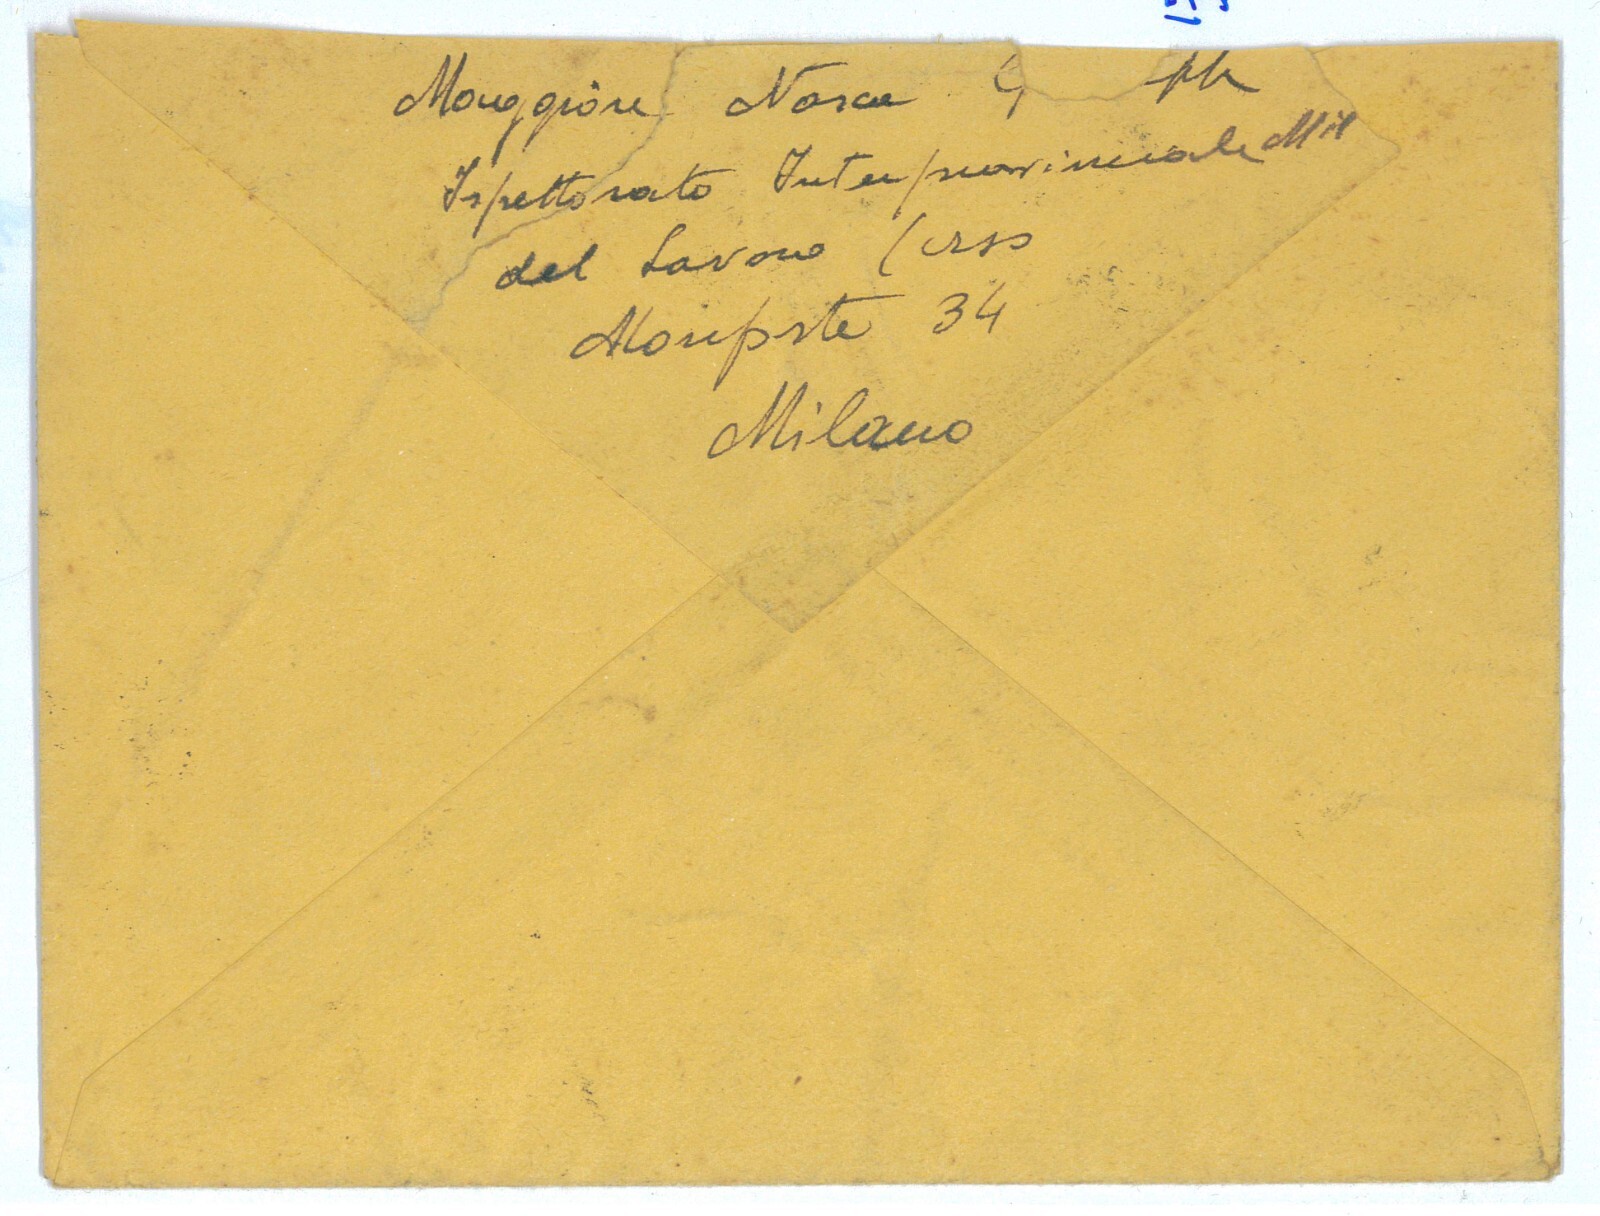 Maggiore Nasca G
Ispettorato Interprovinciale Mil
del Lavoro Corso
Monforte 34
Milano